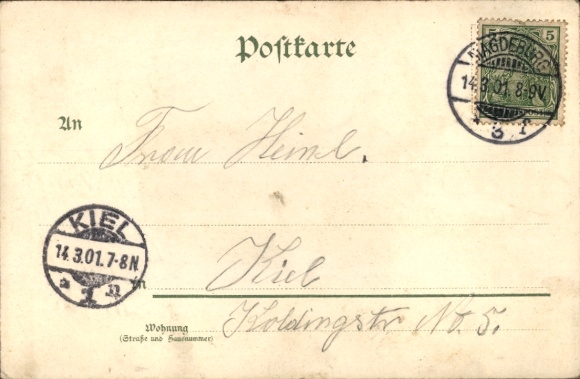 Postkarte
5 5
MAGDEBURG
14.3.01.8-9V.
* 3 r
An
Frau Heinl.
KIEL
14.3.01.7-8N.
* 1 n
in
Kiel
Wohnung
(Straße und Hausnummer)
Koldingstr No. 5.